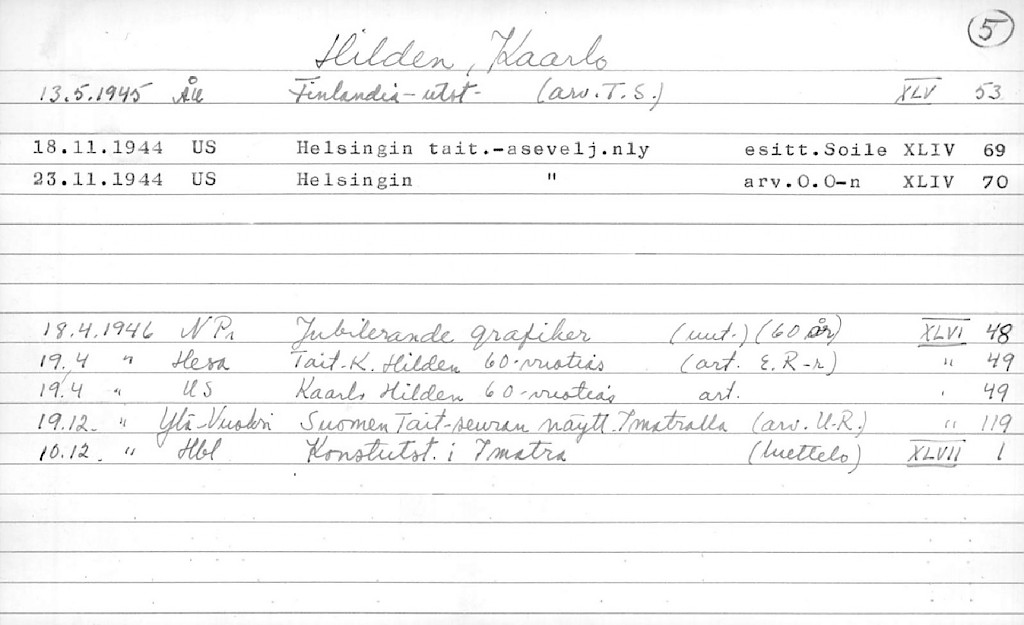 5
Hilden, Kaarlo
13.5.1945 ÅU Finlandia-utst- (arv. T.S.) XLV 53
18.11.1944 US Helsingin tait.-asevelj.nly esitt.Soile XLIV 69
23.11.1944 US Helsingin " arv.O.O-n XLIV 70
18.4.1946 N Pr Jubilerande grafiker (uut.) (60 år) XLVI 48
19/4 " Hesa Tait-K. Hilden 60-vuotias (art. E.R-r) " 49
19/4 " US Kaarlo Hilden 60-vuotias art. " 49
19.12. " Ylä-Vuoksi Suomen Tait-seuran näytt. Imatralla (arv. U-R.) " 119
10.12. " Hbl Konstutst. i Imatra (luettelo) XLVII 1